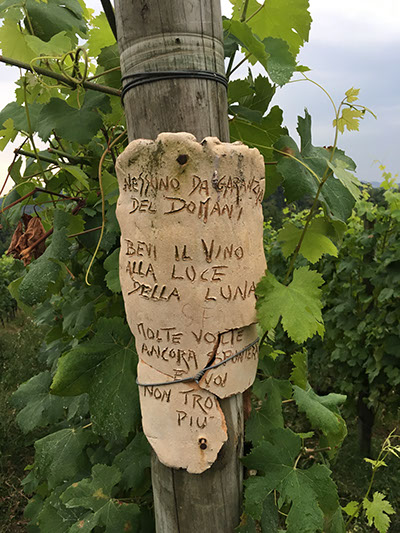 NESSUNO DA GARANZIA
DEL DOMANI
BEVI IL VINO
ALLA LUCE
DELLA LUNA
MOLTE VOLTE
ANCORA SPUNTER
E VOI
NON TRO
PIU